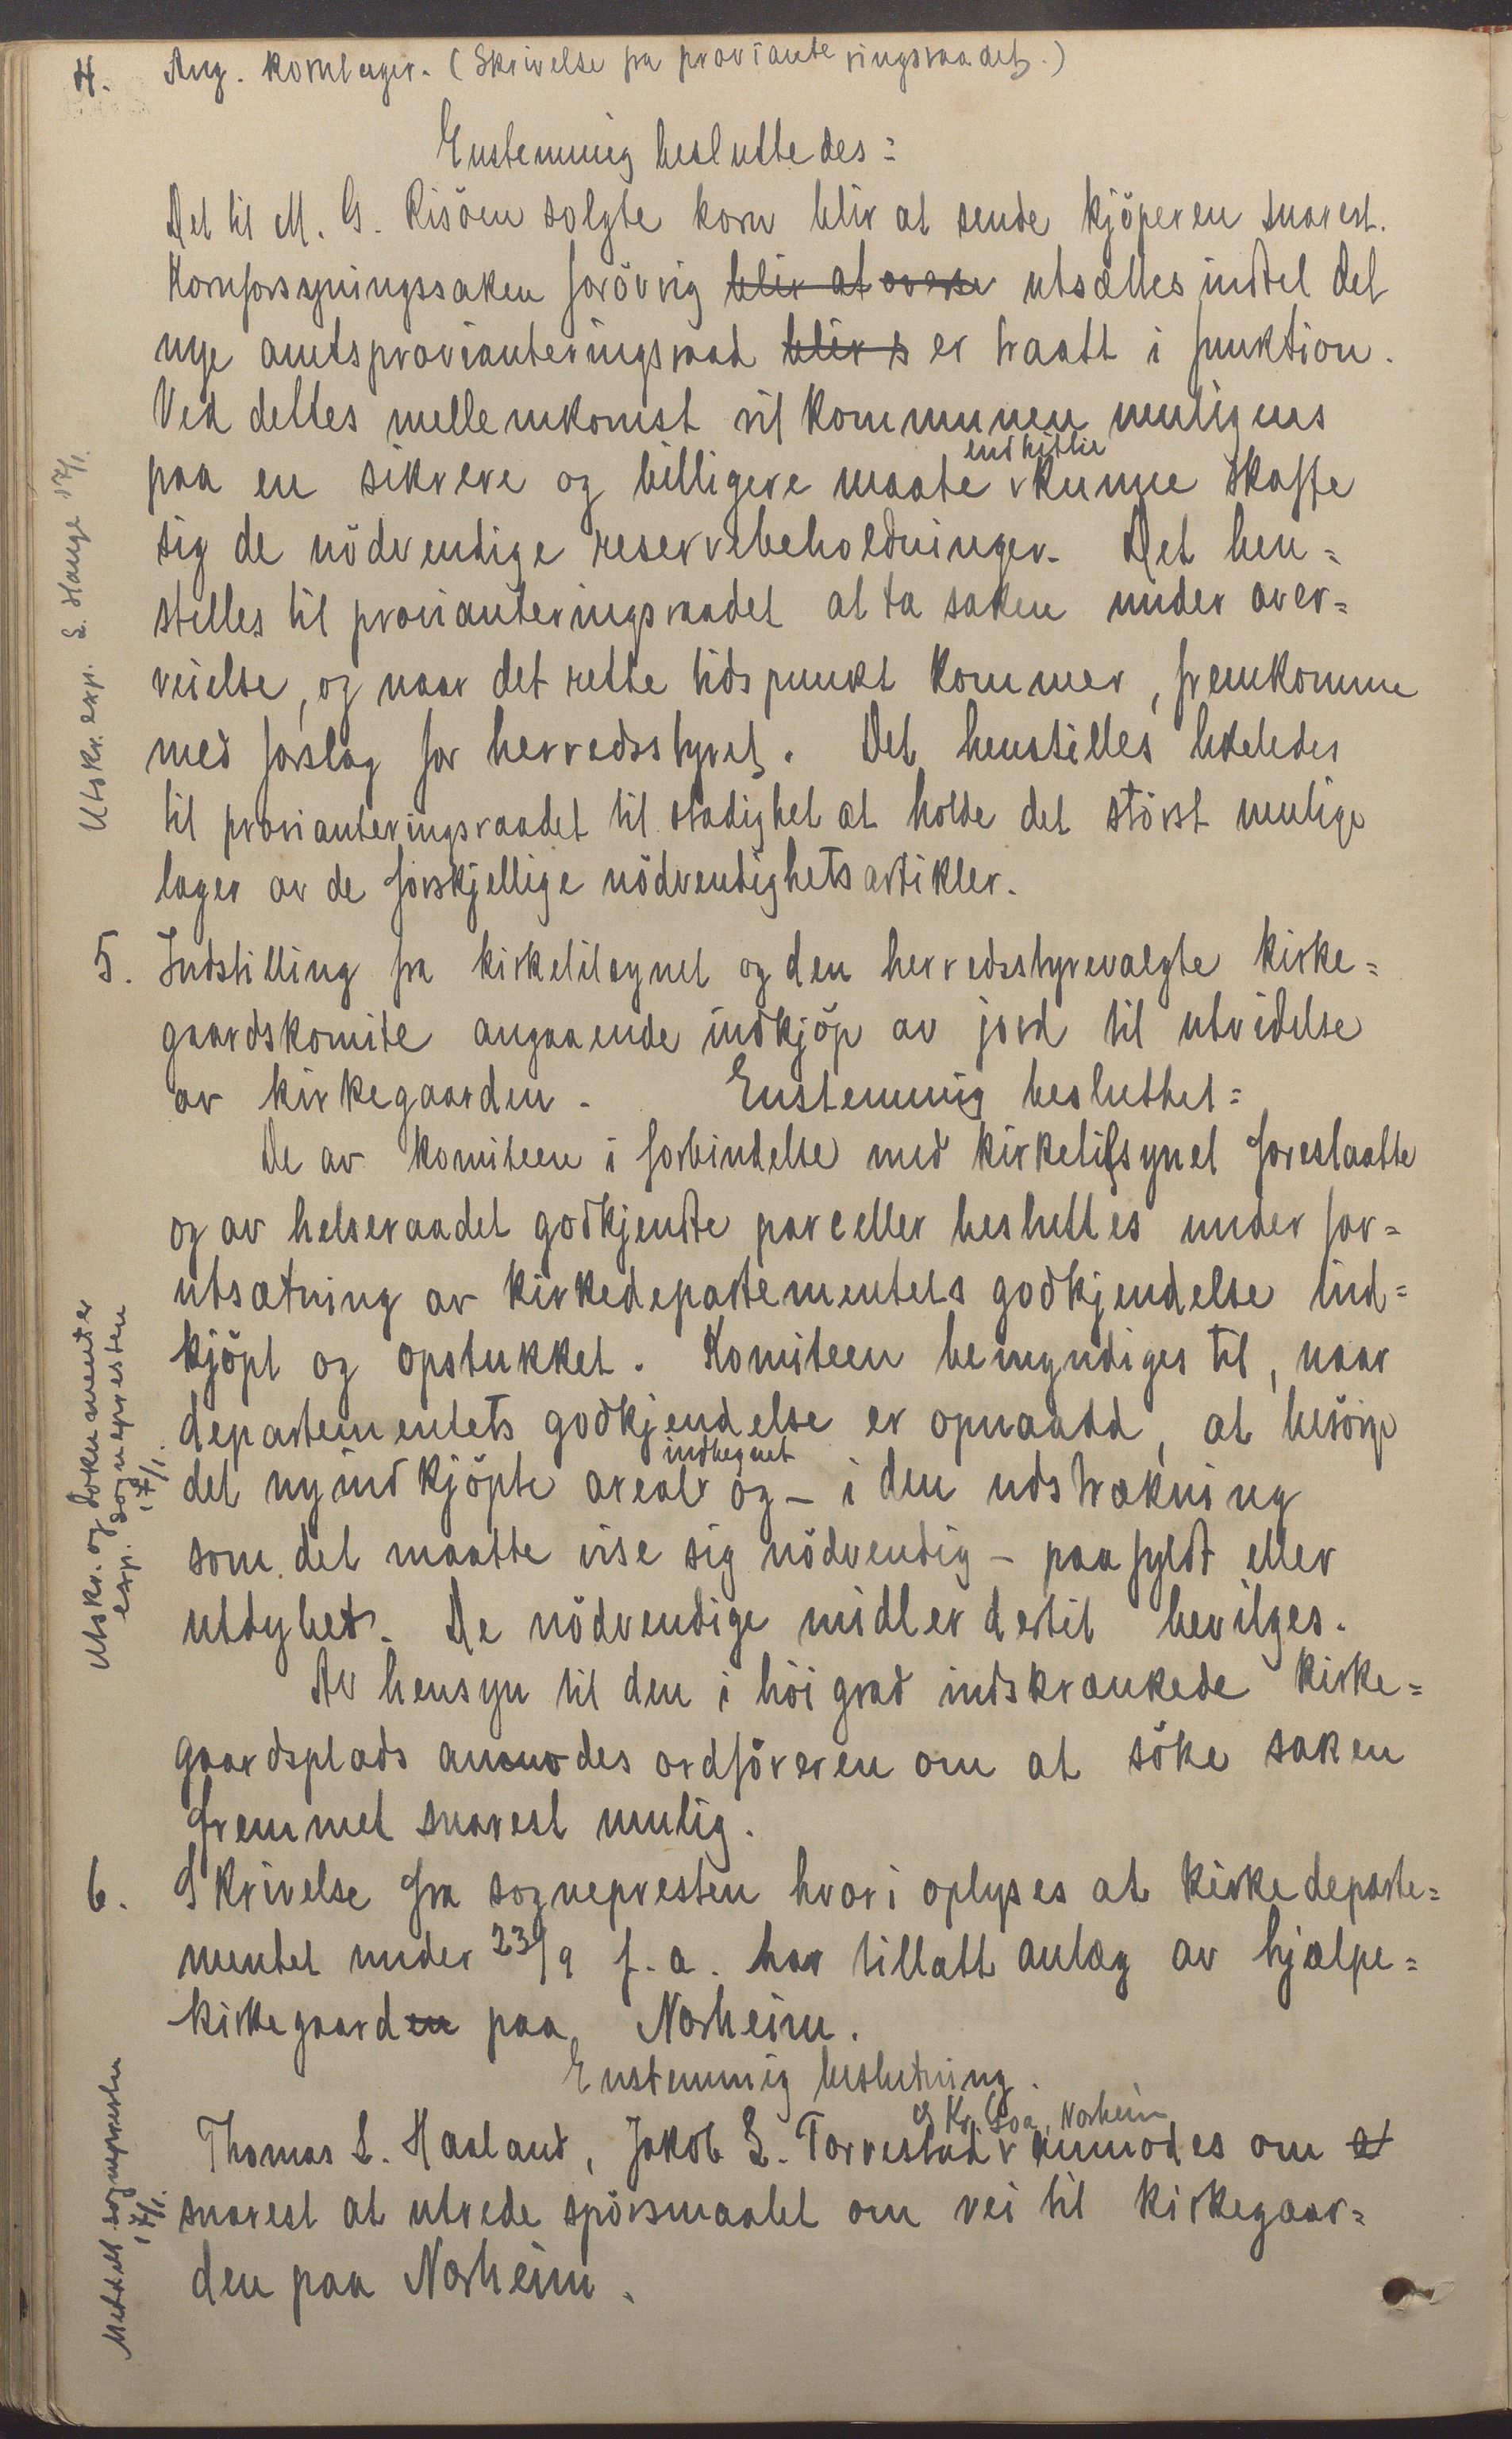 4. Ang. kornlager. (Skrivelse fra provianteringsraadet.)
Enstemmig besluttedes:
Det til M. G. Risöen solgte korn blir at sende kjöperen snarest.
Kornforsyningssaken forövrig blir at overse utsættes indtel det
nye amtsprovianteringsraad blir s er traatt i funktion.
Ved dettes mellemkomst vil kommunen muligens
endhitlie
paa en sikrere og billigere maate v kunne skaffe
sig de nödvendige reservebeholdninger. Det hen=
stilles til provianteringsraadet at ta saken under over=
veielse, og naar det rette tidspunkt kommer, fremkomme
med forslag for herredsstyret. Det henstilles likeledes
til provianteringsraadet til stadighet at holde det störst mulige
lager av de forskjellige nödvendighetsartikler.
Utskr. exp. E. Hauge 17/1.
5. Indstilling fra kirketilsynet og den herredsstyrevalgte kirke=
gaardskomite angaaende indkjöp av jord til utvidelse
av kirkegaarden. Enstemmig besluttet:
De av komiteen i forbindelse med kirketilsynet foreslaatte
og av helseraadet godkjendte parceller besluttes under for=
utsætning av kirkedepartementets godkjendelse ind=
kjöpt og opstukket. Komiteen bemyndiges til, naar
departementets godkjendelse er opnaadd, at besörge
indhegnet
det nyindkjöpte areal v og - i den udstrækning
som det maatte vise sig nödvendig - paafyldt eller
uttdybet. De nödvendige midler dertil bevilges.
Av hensyn til den i höi grad indskrænkede kirke=
gaardsplads anmodes ordföreren om at söke saken
fremmet snarest mulig.
Utskr. og dokumenter
exp. sognepresten
17/1.
6. Skrivelse fra sognepresten hvori oplyses at kirkedeparte=
mentet under 23/9 f. a. har tillatt anlæg av hjælpe=
kirkegaarden paa Norheim.
Enstemmig beslutning.
& Kr. Goa, Norheim
Thomas L. Haaland, Jakob L. Torvestad v anmodes om at
snarest at utrede spörsmaalet om vei til kirkegaar=
den paa Norheim.
Meddelt sognepresten
17/1.